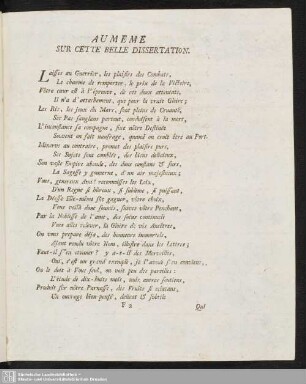 AU MEME
SUR CETTE BELLE DISSERTATION.
Laisses au Guerrier, les plaisirs des Combats,
Le charme de remporter, le prix de la Victoire,
Vôtre cœur est à l'épreuve, de ces doux attentats,
Il n'a d'attachement, que pour la vraie Gloire;
Les Ris, les Jeux du Mars, sont pleins de Cruauté,
Ses Pas sanglans partout, conduisent à la mort,
L'inconstance sa compagne, sans nôtre Destinée
Souvent on fait naufrage, quand on croit être au Port.
Minerve au contraire, promet des plaisirs purs,
Ses Sujets sont comblés, de biens delicieux,
Son vaste Empire abonde, des dons constans & surs,
La Sagesse y gouverne, d'un air majestueux;
Vous, genereux Ami! reconnoisses les Loix,
D'un Regne si heureux, si sublime, si puissant,
La Déesse Elle-même
Par la Noblesse de l'ame, des soins
Vous alles relever, la Gloire de vos Ancêtres,
On vous prepare déja, des honneurs immortels,
Ayant rendu vôtre Nom, illustre dans les Lettres;
Faut-il s'en étonner? y a-t-il des Merveilles,
Oui, c'est un grand exemple,
On le doit à Vous seul, on voit peu des pareilles:
L'étude de dix-huits mois,
Produit sur vôtre Parnasse, des Fruits si éclatans,
Ce ouvrage bien pensé, delicat & fidele
Y 2
Qui